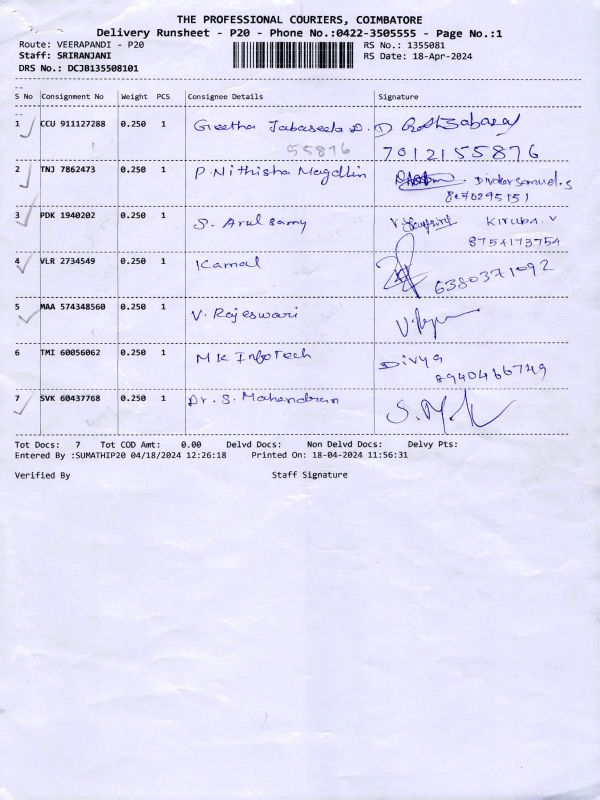 THE PROFESSIONAL COURIERS, COIMBATORE
Delivery Runsheet - P20 - Phone No.:0422-3505555 - Page No.:1
Route: VEERAPANDI - P20 RS No.: 1355081
Staff: SRIRANJANI RS Date: 18-Apr-2024
DRS No.: DCJB135508101
S No Consignment No Weight PCS Consignee Details Signature
1 CCU 911127288 0.250 1 Geetha Jabaseela D. D
55876 7012155876
2 TNJ 7862473 0.250 1 P. Nithisha Magdlin
8870295151
3 PDK 1940202 0.250 1 S. Arul samy Kiruba. V
8754173754
4 VLR 2734549 0.250 1 Kamal 6380371092
5 MAA 574348560 0.250 1 V. Rajeswari
6 TMI 60056062 0.250 1 MK InfoTech Divya
8940466749
7 SVK 60437768 0.250 1 Dr. S. Mahendran
Tot Docs: 7 Tot COD Amt: 0.00 Delvd Docs: Non Delvd Docs: Delvy Pts:
Entered By :SUMATHIP20 04/18/2024 12:26:18 Printed On: 18-04-2024 11:56:31
Verified By Staff Signature